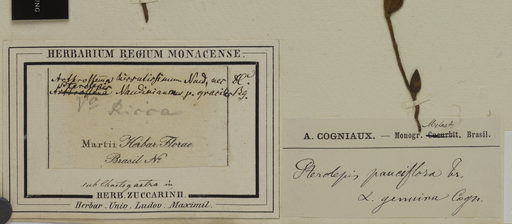 HERBARIUM REGIUM MONACENSE.
Arthrostema hirsutissimum Naud, nec DC.
Pterolepis
Naudiniana p. gracilis Bg.
Ricca
Martii Herbar. Florae
Brasil. No.
sub Chaetogastra in
HERB. ZUCCARINII.
Herbar. Univ. Ludov. Maximil.
Melast
A. COGNIAUX. — Monogr. Cucurbit. Brasil.
Pterolepis pauciflora Tr.
α. genuina Cogn.